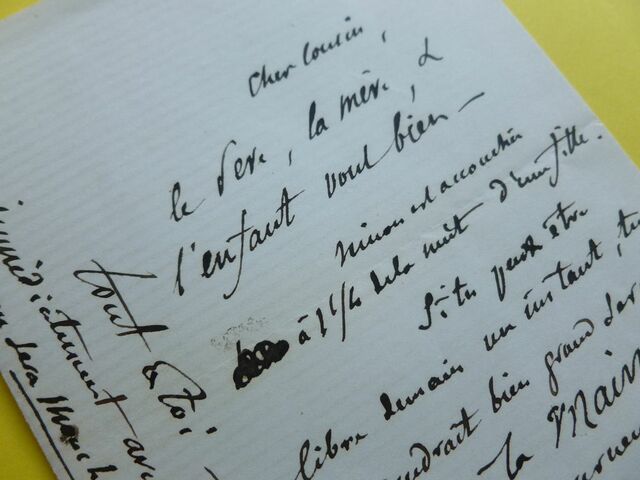 Cher Cousin,
le Père, la mère, &
l'enfant vont bien —
Ninon est accouchée
à 1 1/4 de la nuit d'une fille.
Si tu peux être
libre demain un instant, tu
bien grand
la Mairie
tout à toi
immédiatement
sera